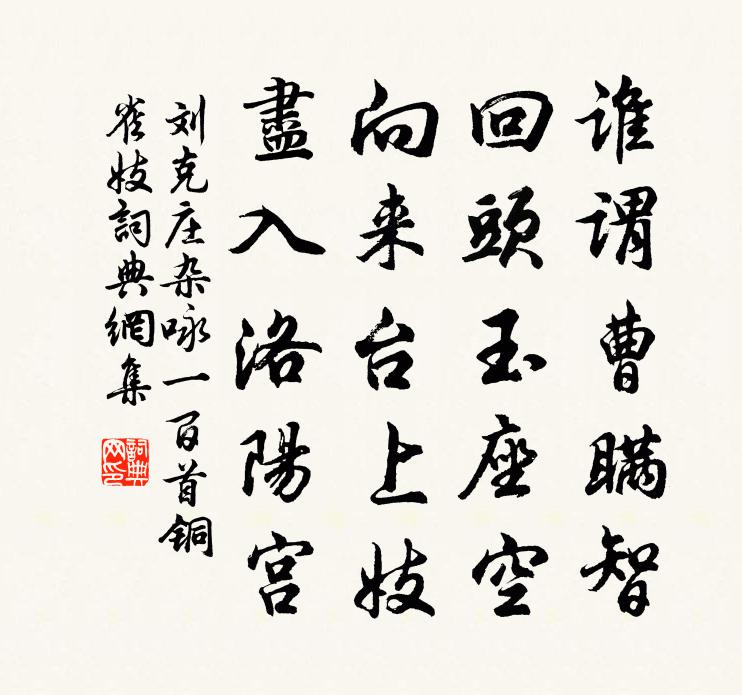 谁谓曹瞒智
回頭玉座空
向来台上妓
盡入洛陽宫
刘克庄杂咏一百首銅
雀妓詞典網集
詞典网印